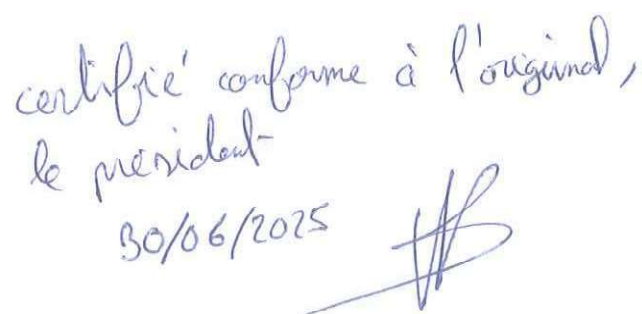 certifié conforme à l'original,
le président
30/06/2025